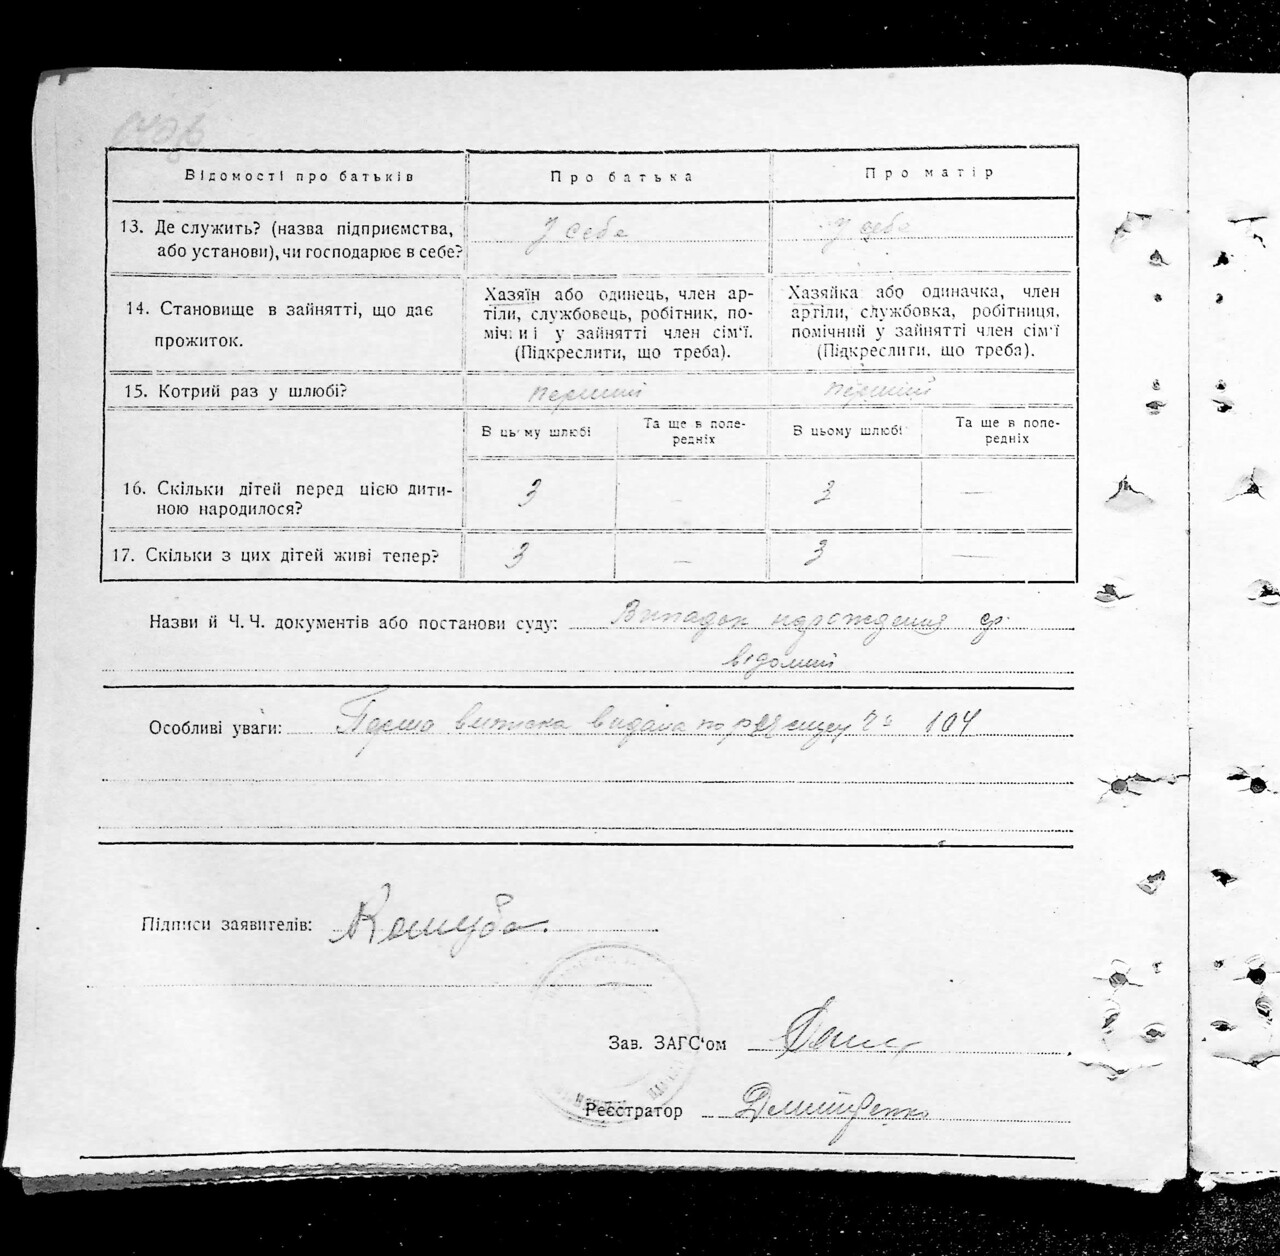 Відомості про батьків
Про батька
Про матір
13. Де служить? (назва підприємства,
або установи), чи господарює в себе?
У себе
У себе
14. Становище в зайнятті, що дає
прожиток.
Хазяїн або одинець, член ар-
тіли, службовець, робітник, по-
мічниі у зайнятті член сім'ї.
(Підкреслити, що треба).
Хазяйка або одиначка, член
артіли, службовка, робітниця,
помічний у зайнятті член сім'ї
(Підкреслити, що треба).
15. Котрий раз у шлюбі?
перший
перший
В цьому шлюбі
Та ще в попе-
редніх
В цьому шлюбі
Та ще в попе-
редніх
16. Скільки дітей перед цією дити-
ною народилося?
3
—
3
—
17. Скільки з цих дітей живі тепер?
3
—
3
—
Назви й Ч. Ч. документів або постанови суду: Випадок народження
відомий
Особливі уваги: Перша виписка видана по 104
Підписи заявителів:
Зав. ЗАГС'ом
Реєстратор Дмитренко